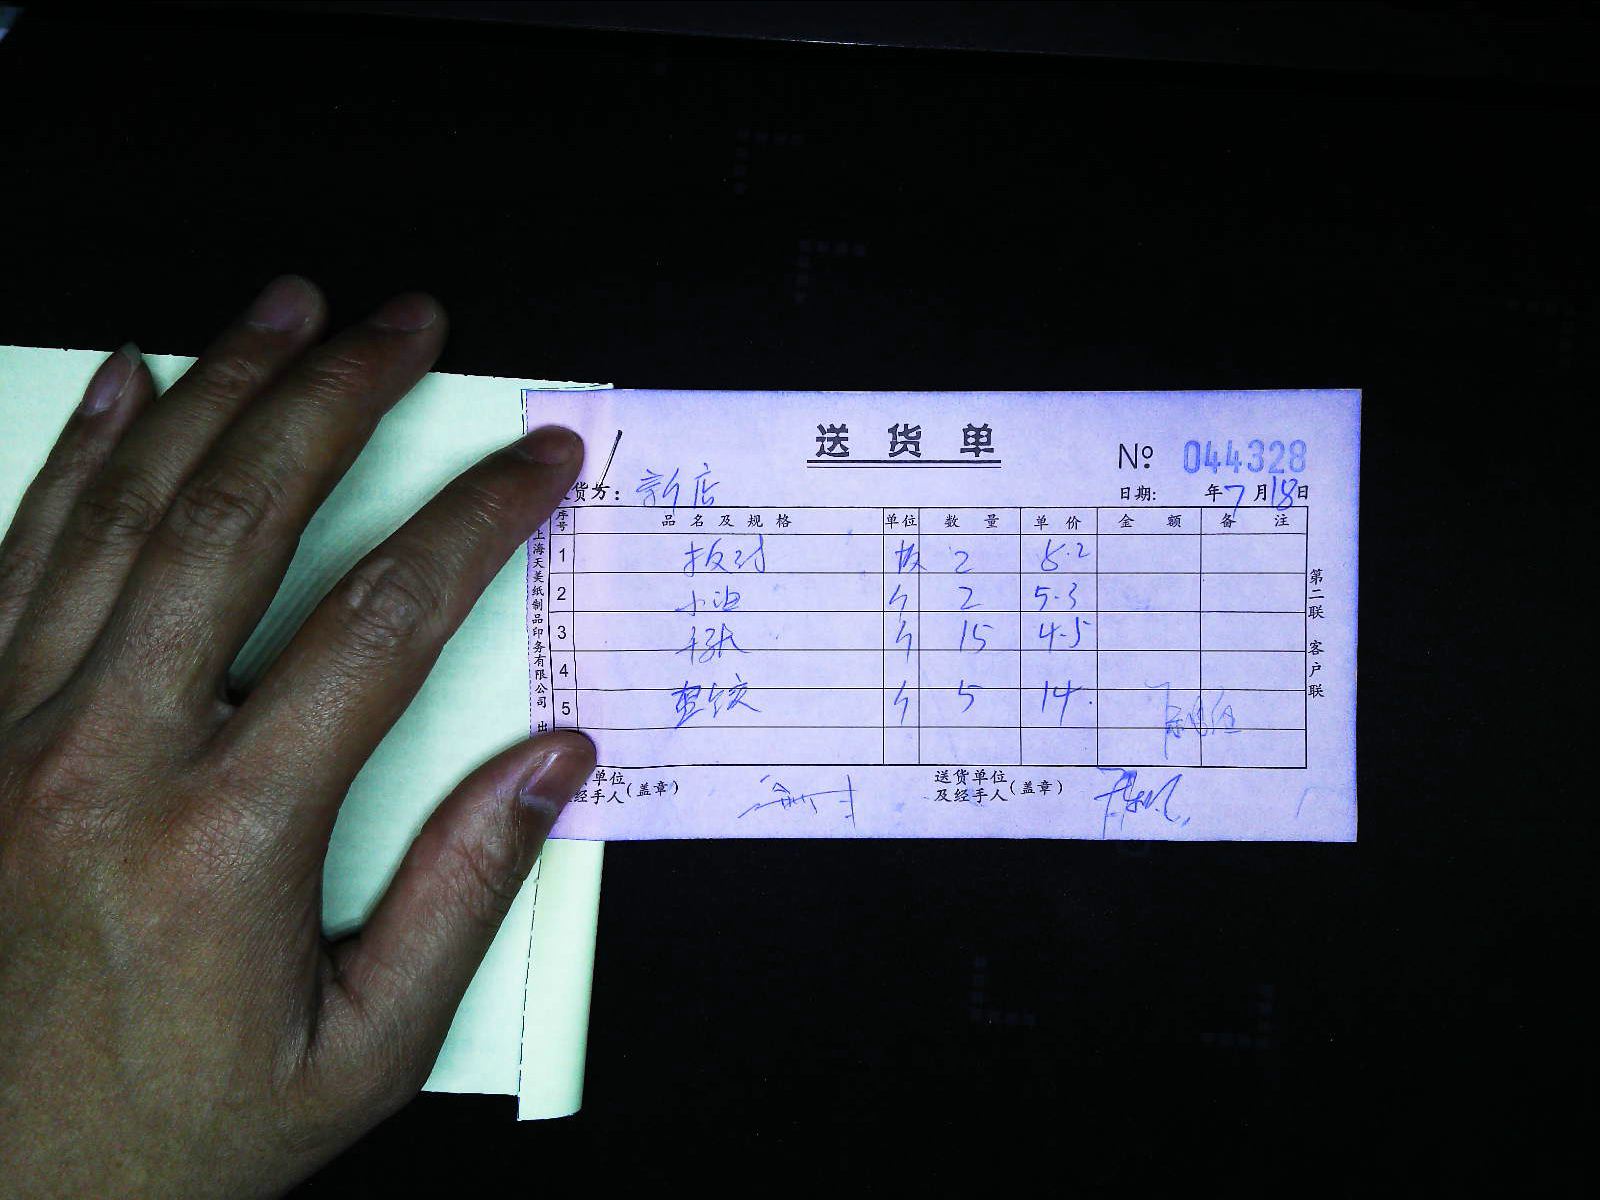 送货单
No 044328
货方：新店
日期： 年7月18日
序号 品名及规格 单位 数量 单价 金额 备注
1 扳对 板 2 8.2
2 小油 个 2 5.3
3 个 15 4.5
4
5 个 5 14.
单位及经手人（盖章）
送货单位及经手人（盖章）
第二联 客户联
上海天美纸制品印务有限公司 出